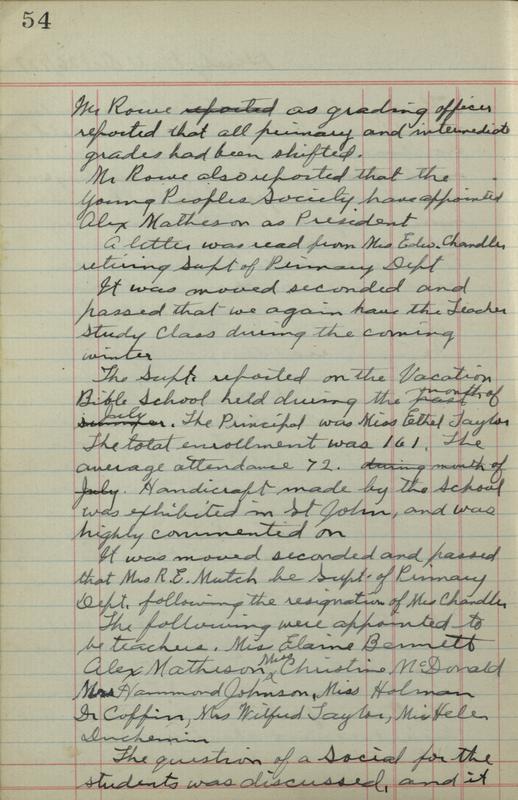 54
Mr Rowe reported as grading officer
reported that all primary and intermediate
grades had been shifted.
Mr Rowe also reported that the
Young Peoples Society have appointed
Alex Matheson as President
A letter was read from Mrs Edw. Chandler
retiring Supt of Primary Dept
It was moved seconded and
passed that we again have the Teacher
Study Class during the coming
winter
The Supt. reported on the Vacation
Bible School held during the past month of
summer July. The Principal was Miss Ethel Taylor
The total enrollment was 161. The
average attendance 72. during month of
July. Handicraft made by the School
was exhibited in St John, and was
highly commented on
It was moved seconded and passed
that Mrs R.E. Mutch be Supt. of Primary
Dept. following the resignation of Mrs Chandler
The following were appointed to
be teachers. Miss Elaine Bennett
Alex Matheson, Miss Christine McDonald
Mrs Hammond Johnson, Miss Holman
Dr Coffin, Mrs Wilfred Taylor, Miss Helen
Duchemin
The question of a Social for the
students was discussed, and it